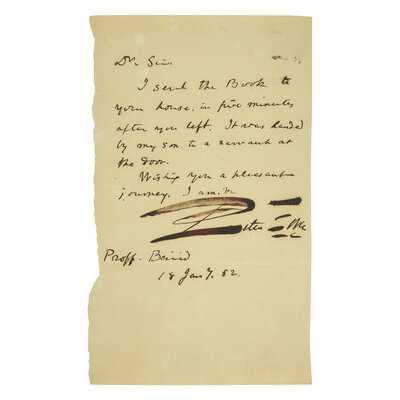 Dr Sir
I sent the Book to
your house, in five minutes
after you left. It was handed
by my son to a servant at
the door.
Wishing you a pleasant
journey. I am,
Peter
Proff. Baird
18 Jany. 52.